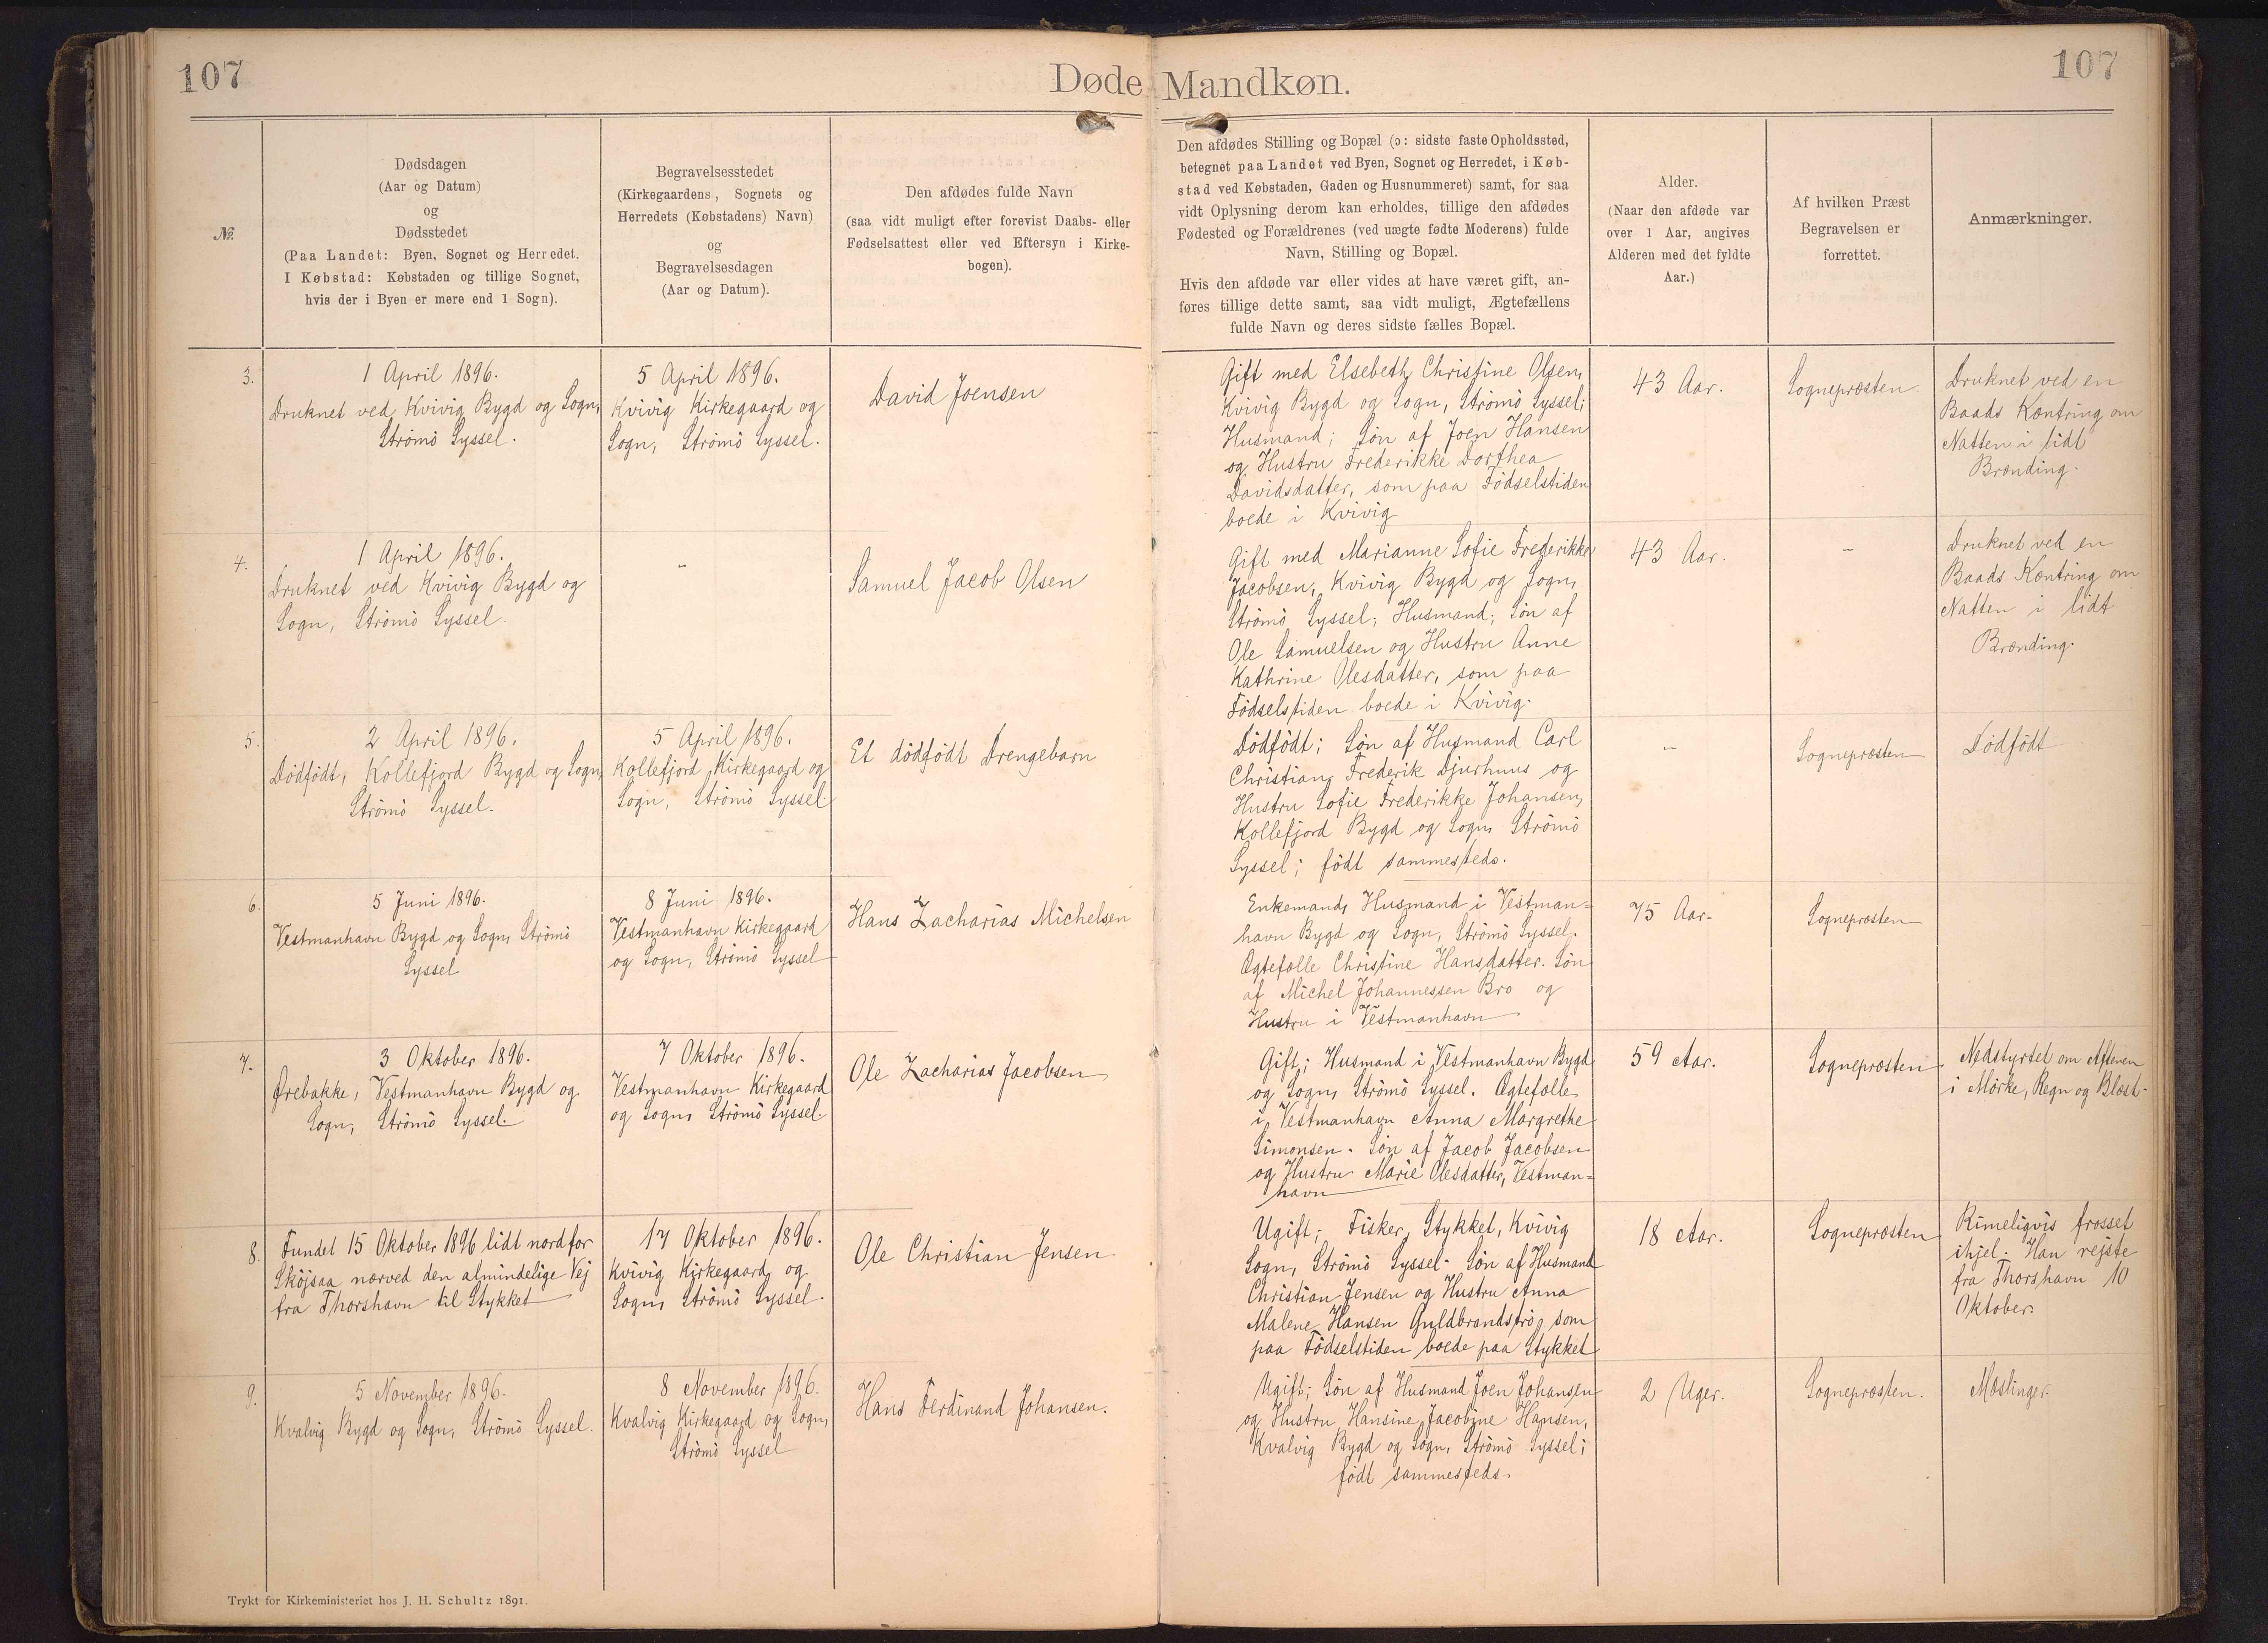 107
Døde Mandkøn.
107
№.
Dødsdagen
(Aar og Datum)
og
Dødsstedet
(Paa Landet: Byen, Sognet og Herredet.
I Købstad: Købstaden og tillige Sognet,
hvis der i Byen er mere end 1 Sogn).
Begravelsesstedet
(Kirkegaardens, Sognets og
Herredets (Købstadens) Navn)
og
Begravelsesdagen
(Aar og Datum).
Den afdødes fulde Navn
(saa vidt muligt efter forevist Daabs- eller
Fødselsattest eller ved Eftersyn i Kirke-
bogen).
Den afdødes Stilling og Bopæl (ɔ: sidste faste Opholdssted,
betegnet paa Landet ved Byen, Sognet og Herredet, i Køb-
stad ved Købstaden, Gaden og Husnummeret) samt, for saa
vidt Oplysning derom kan erholdes, tillige den afdødes
Fødested og Forældrenes (ved uægte fødte Moderens) fulde
Navn, Stilling og Bopæl.
Hvis den afdøde var eller vides at have været gift, an-
føres tillige dette samt, saa vidt muligt, Ægtefællens
fulde Navn og deres sidste fælles Bopæl.
Alder.
(Naar den afdøde var
over 1 Aar, angives
Alderen med det fyldte
Aar.)
Af hvilken Præst
Begravelsen er
forrettet.
Anmærkninger.
3.
1 April 1896.
Druknet ved Kvivig Bygd og Sogn,
Strömö Syssel.
5 April 1896.
Kvivig Kirkegaard og
Sogn, Strömö Syssel.
David Joensen
Gift med Elsebeth Christine Olsen,
Kvivig Bygd og Sogn, Strömö Syssel;
Husmand; Sön af Joen Hansen
og Hustru Frederikke Dorthea
Davidsdatter, som paa Födselstiden
boede i Kvivig
43 Aar.
Sognepræsten.
Druknet ved en
Baads Kæntring om
Natten i lidt
Brænding.
4.
1 April 1896.
Druknet ved Kvivig Bygd og
Sogn, Strömö Syssel.
-
Samuel Jacob Olsen
Gift med Marianne Sofie Frederikke
Jacobsen, Kvivig Bygd og Sogn,
Strömö Syssel; Husmand; Sön af
Ole Samuelsen og Hustru Anne
Kathrine Olesdatter, som paa
Födselstiden boede i Kvivig.
43 Aar.
-
Druknet ved en
Baads Kæntring om
Natten i lidt
Brænding.
5.
2 April 1896.
Dödfödt, Kollefjord Bygd og Sogn,
Strömö Syssel.
5 April 1896.
Kollefjord Kirkegaard og
Sogn, Strömö Syssel
Et dödfödt Drengebarn
Dödfödt; Sön af Husmand Carl
Christian Frederik Djurhuus og
Hustru Sofie Frederikke Johansen,
Kollefjord Bygd og Sogn, Strömö
Syssel; födt sammesteds.
-
Sognepræsten
Dödfödt
6.
5 Juni 1896.
Vestmanhavn Bygd og Sogn, Strömö
Syssel
8 Juni 1896.
Vestmanhavn Kirkegaard
og Sogn, Strömö Syssel
Hans Zacharias Michelsen
Enkemand, Husmand i Vestman=
havn Bygd og Sogn, Strömö Syssel.
Ægtefælle Christine Hansdatter. Sön
af Michel Johannessen Bro og
Hustru i Vestmanhavn
75 Aar.
Sognepræsten
7.
3 Oktober 1896.
Örebakke, Vestmanhavn Bygd og
Sogn, Strömö Syssel.
7 Oktober 1896.
Vestmanhavn Kirkegaard
og Sogn, Strömö Syssel.
Ole Zacharias Jacobsen
Gift; Husmand i Vestmanhavn Bygd
og Sogn, Strömö Syssel. Ægtefælle
i Vestmanhavn Anna Margrethe
Simonsen. Sön af Jacob Jacobsen
og Hustru Marie Olesdatter, Vestman=
havn
59 Aar.
Sognepræsten
Nedstyrtet om Aftenen
i Mörke, Regn og Blæst.
8.
Fundet 15 Oktober 1896 lidt nord for
Sköjsaa nærved den almindelige Vej
fra Thorshavn til Stykket
17 Oktober 1896.
Kvivig Kirkegaard og
Sogn, Strömö Syssel.
Ole Christian Jensen
Ugift; Fisker, Stykket, Kvivig
Sogn, Strömö Syssel. Sön af Husmand
Christian Jensen og Hustru Anna
Malene Hansen Guldbrandströ, som
paa Födselstiden boede paa Stykket
18 Aar.
Sognepræsten
Rimeligvis frosset
ihjel. Han rejste
fra Thorshavn 10
Oktober.
9.
5 November 1896.
Kvalvig Bygd og Sogn, Strömö Syssel.
8 November 1896.
Kvalvig Kirkegaard og Sogn,
Strömö Syssel
Hans Ferdinand Johansen.
Ugift; Sön af Husmand Joen Johansen
og Hustru Hansine Jacobine Hansen,
Kvalvig Bygd og Sogn, Strömö Syssel;
födt sammesteds.
2 Uger.
Sognepræsten.
Mæslinger.
Trykt for Kirkeministeriet hos J. H. Schultz 1891.